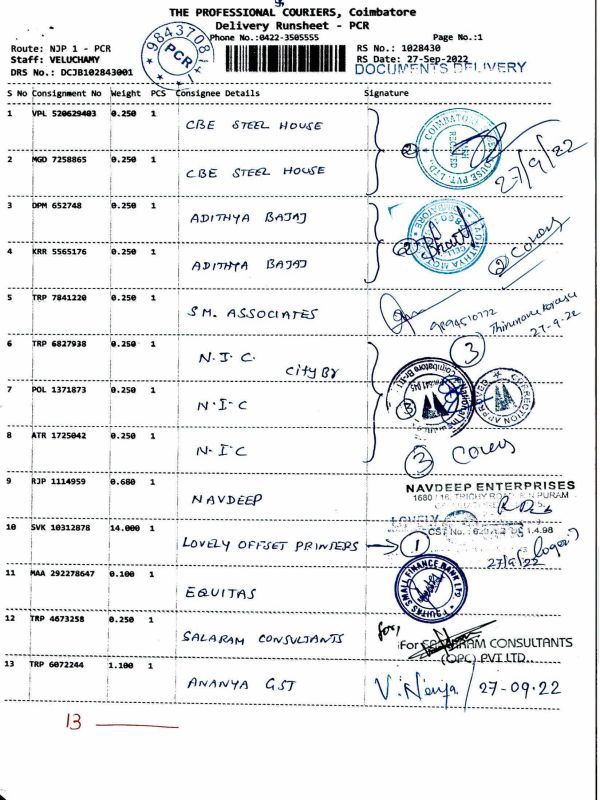 THE PROFESSIONAL COURIERS, Coimbatore
Delivery Runsheet - PCR
Phone No.:0422-3505555
Page No.:1
Route: NJP 1 - PCR
RS No.: 1028430
Staff: VELUCHAMY
RS Date: 27-Sep-2022
DRS No.: DCJB102843001
DOCUMENTS DELIVERY
PCR
S No Consignment No Weight PCS Consignee Details Signature
1 VPL 520629403 0.250 1 CBE STEEL HOUSE
27/9/22
2 MGD 7258865 0.250 1 CBE STEEL HOUSE
3 DPM 652748 0.250 1 ADITHYA BAJAJ
4 KRR 5565176 0.250 1 ADITHYA BAJAJ
2 Covers
5 TRP 7841220 0.250 1 S.M. ASSOCIATES
27-9-22
6 TRP 6827938 0.250 1 N.I.C. City Br
3
7 POL 1371873 0.250 1 N.I.C
8 ATR 1725042 0.250 1 N.I.C
3 Covers
9 RJP 1114959 0.680 1 NAVDEEP
NAVDEEP ENTERPRISES
10 SVK 10312878 14.000 1 LOVELY OFFSET PRINTERS
1
27/9/22
11 MAA 292278647 0.100 1 EQUITAS
EQUITAS SMALL FINANCE BANK LTD
12 TRP 4673258 0.250 1 SALARAM CONSULTANTS
for,
For CONSULTANTS
(OPC) PVT LTD..
13 TRP 6072244 1.100 1 ANANYA GST
27-09-22
13